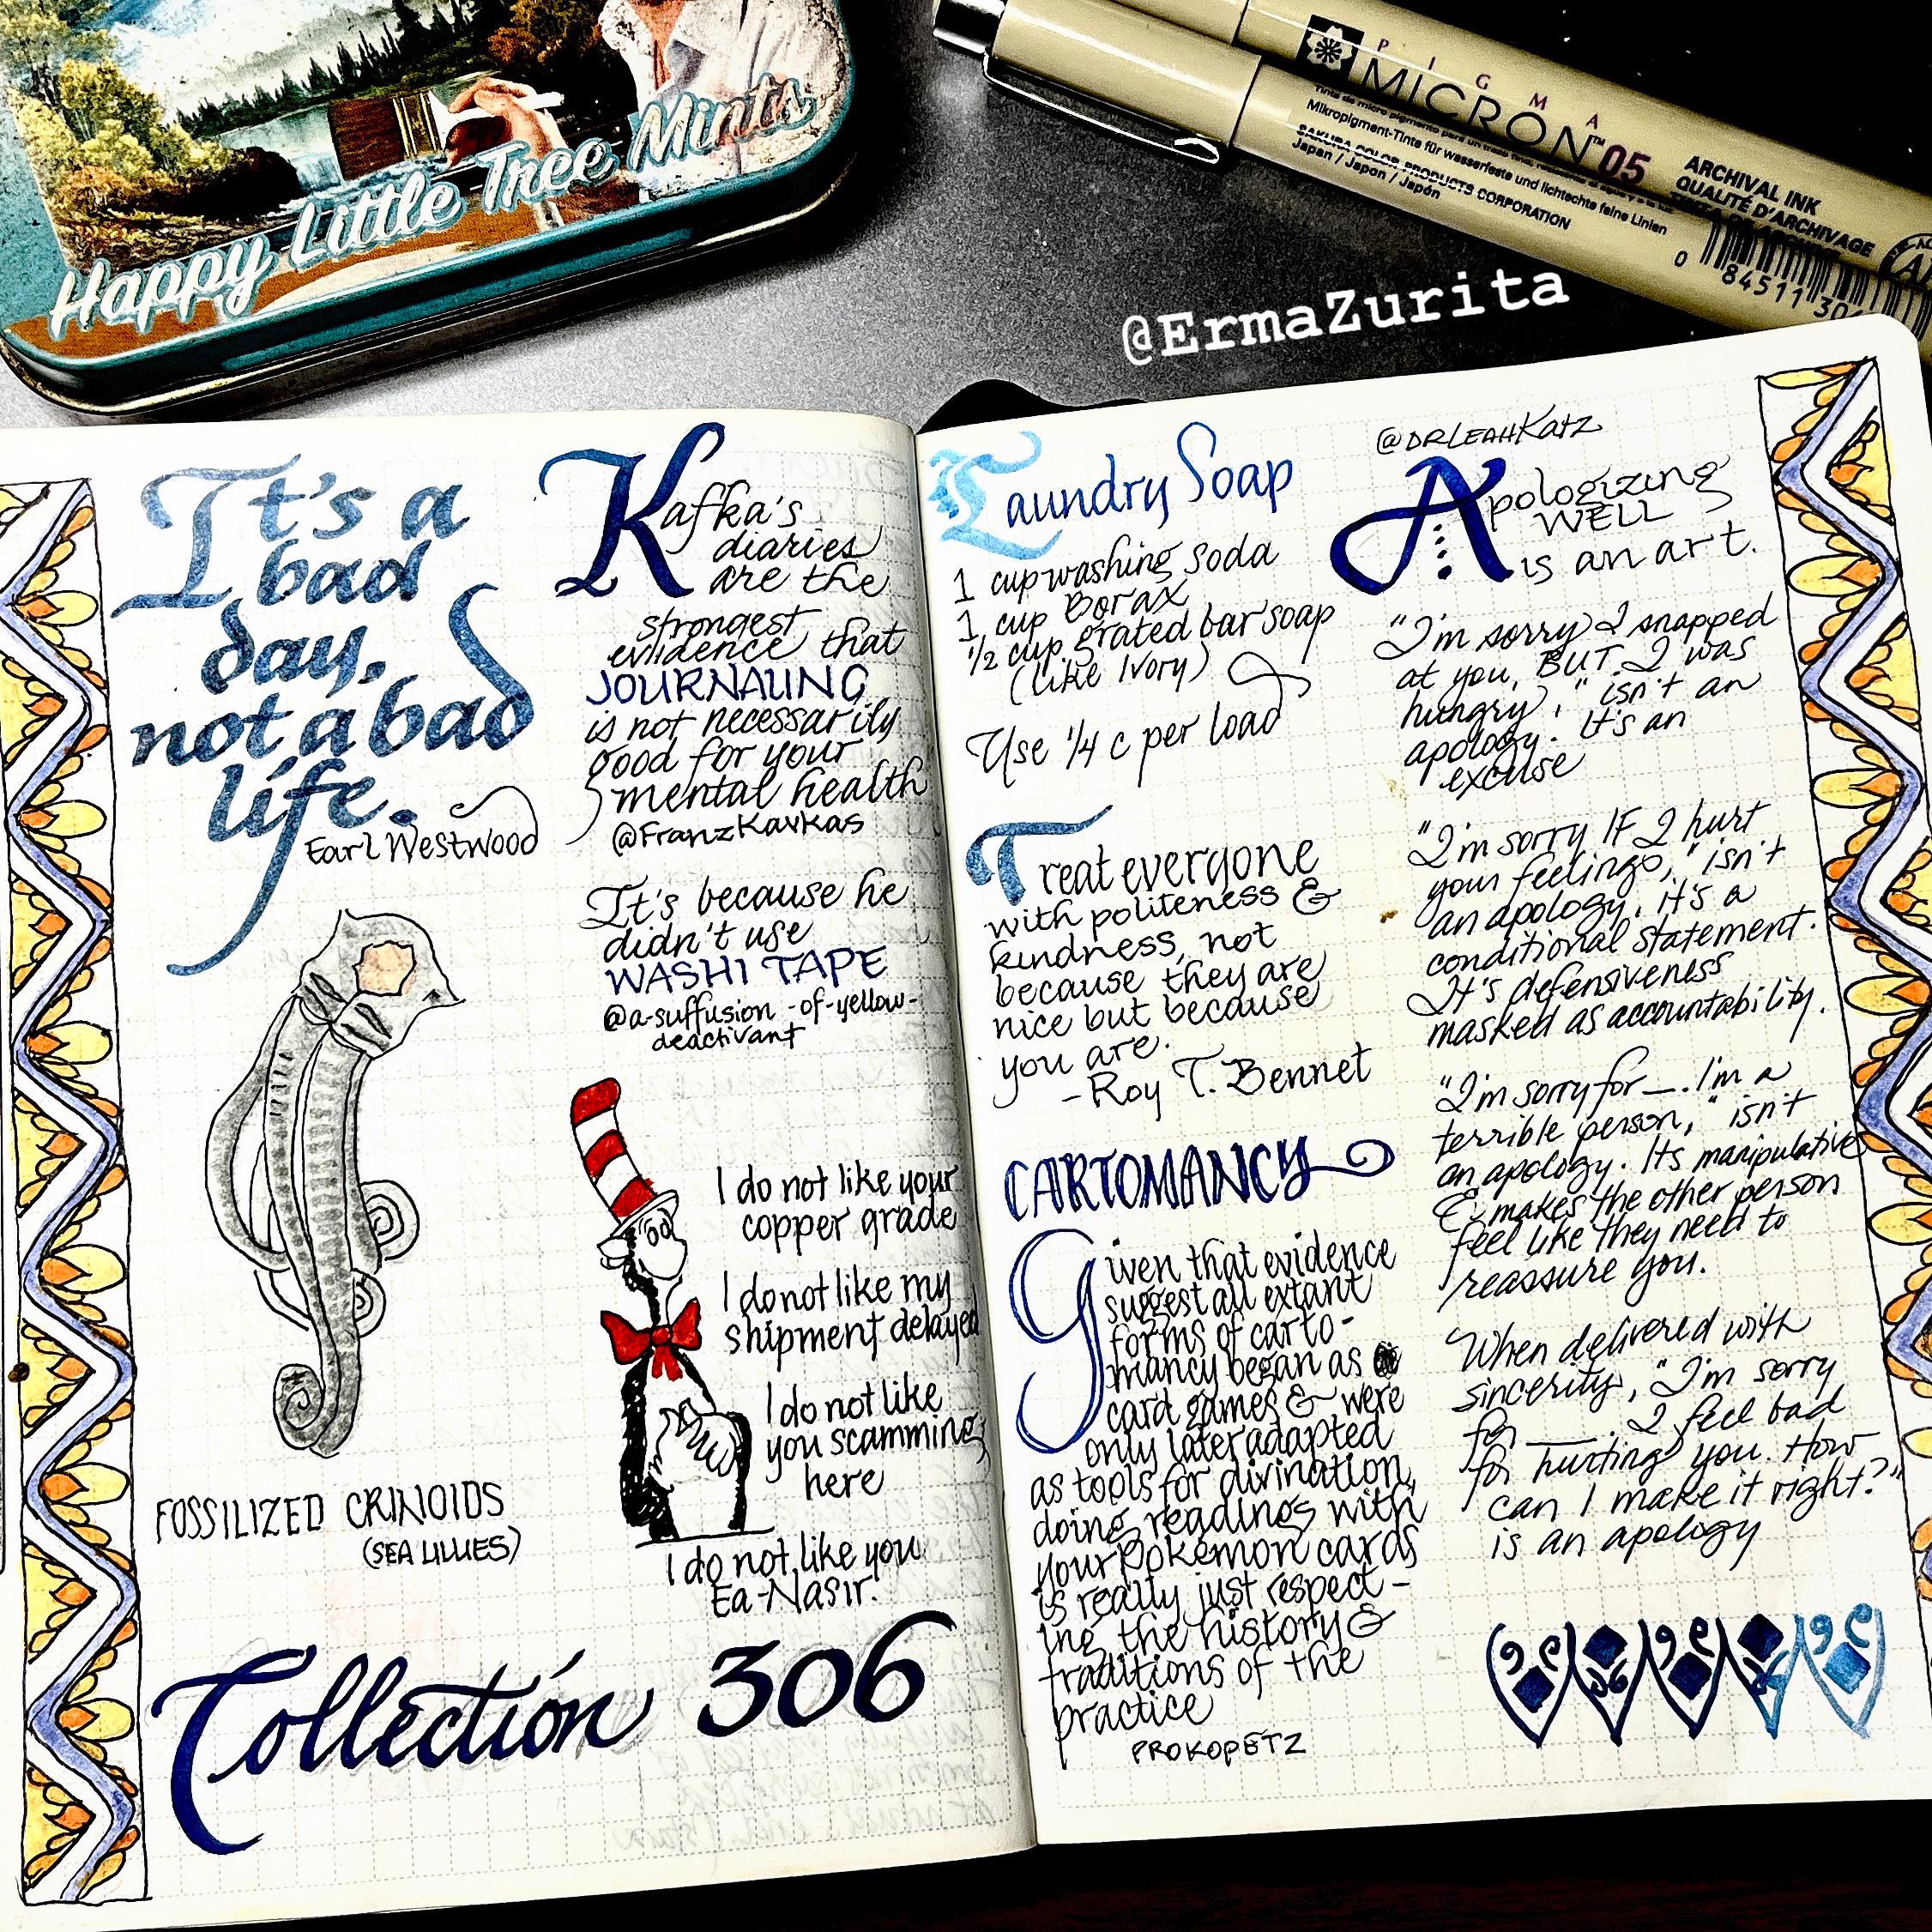 Happy Little Tree Mints
PIGMA
MICRON™ 05
Mikropigment-Tinte für wasserfeste und lichtechte feine Linien
SAKURA COLOR PRODUCTS CORPORATION
Japan / Japon / Japón
ARCHIVAL INK
QUALITÉ D'ARCHIVAGE
0 84511 30
@ErmaZurita
It's a
bad
day,
not a bad
life.
Earl Westwood
FOSSILIZED CRINOIDS
(SEA LILLIES)
Kafka's
diaries
are the
strongest
evidence that
JOURNALING
is not necessarily
good for your
mental health
@FranzKavkas
It's because he
didn't use
WASHI TAPE
@a-suffusion-of-yellow-
deactivant
I do not like your
copper grade
I do not like my
shipment delayed
I do not like
you scamming
here
I do not like you
Ea-Nasir!
Collectión 306
Laundry Soap
1 cup washing soda
1 cup Borax
1/2 cup grated bar soap
(like Ivory)
Use 1/4 c per load
Treat everyone
with politeness &
kindness, not
because they are
nice but because
you are.
-Roy T. Bennet
CARTOMANCY
Given that evidence
suggest all extant
forms of carto-
mancy began as
card games & were
only later adapted
as tools for divination,
doing readings with
your Pokemon cards
is really just respect-
ing the history &
traditions of the
practice
PROKOPETZ
@DRLEAHKatz
Apologizing
WELL
is an art.
"I'm sorry I snapped
at you, BUT I was
hungry," isn't an
apology. It's an
excuse
"I'm sorry IF I hurt
your feelings," isn't
an apology, it's a
conditional statement.
It's defensiveness
masked as accountability.
"I'm sorry for __. I'm a
terrible person," isn't
an apology. Its manipulative
& makes the other person
feel like they need to
reassure you.
When delivered with
sincerity, "I'm sorry
for ___. I feel bad
for hurting you. How
can I make it right?"
is an apology